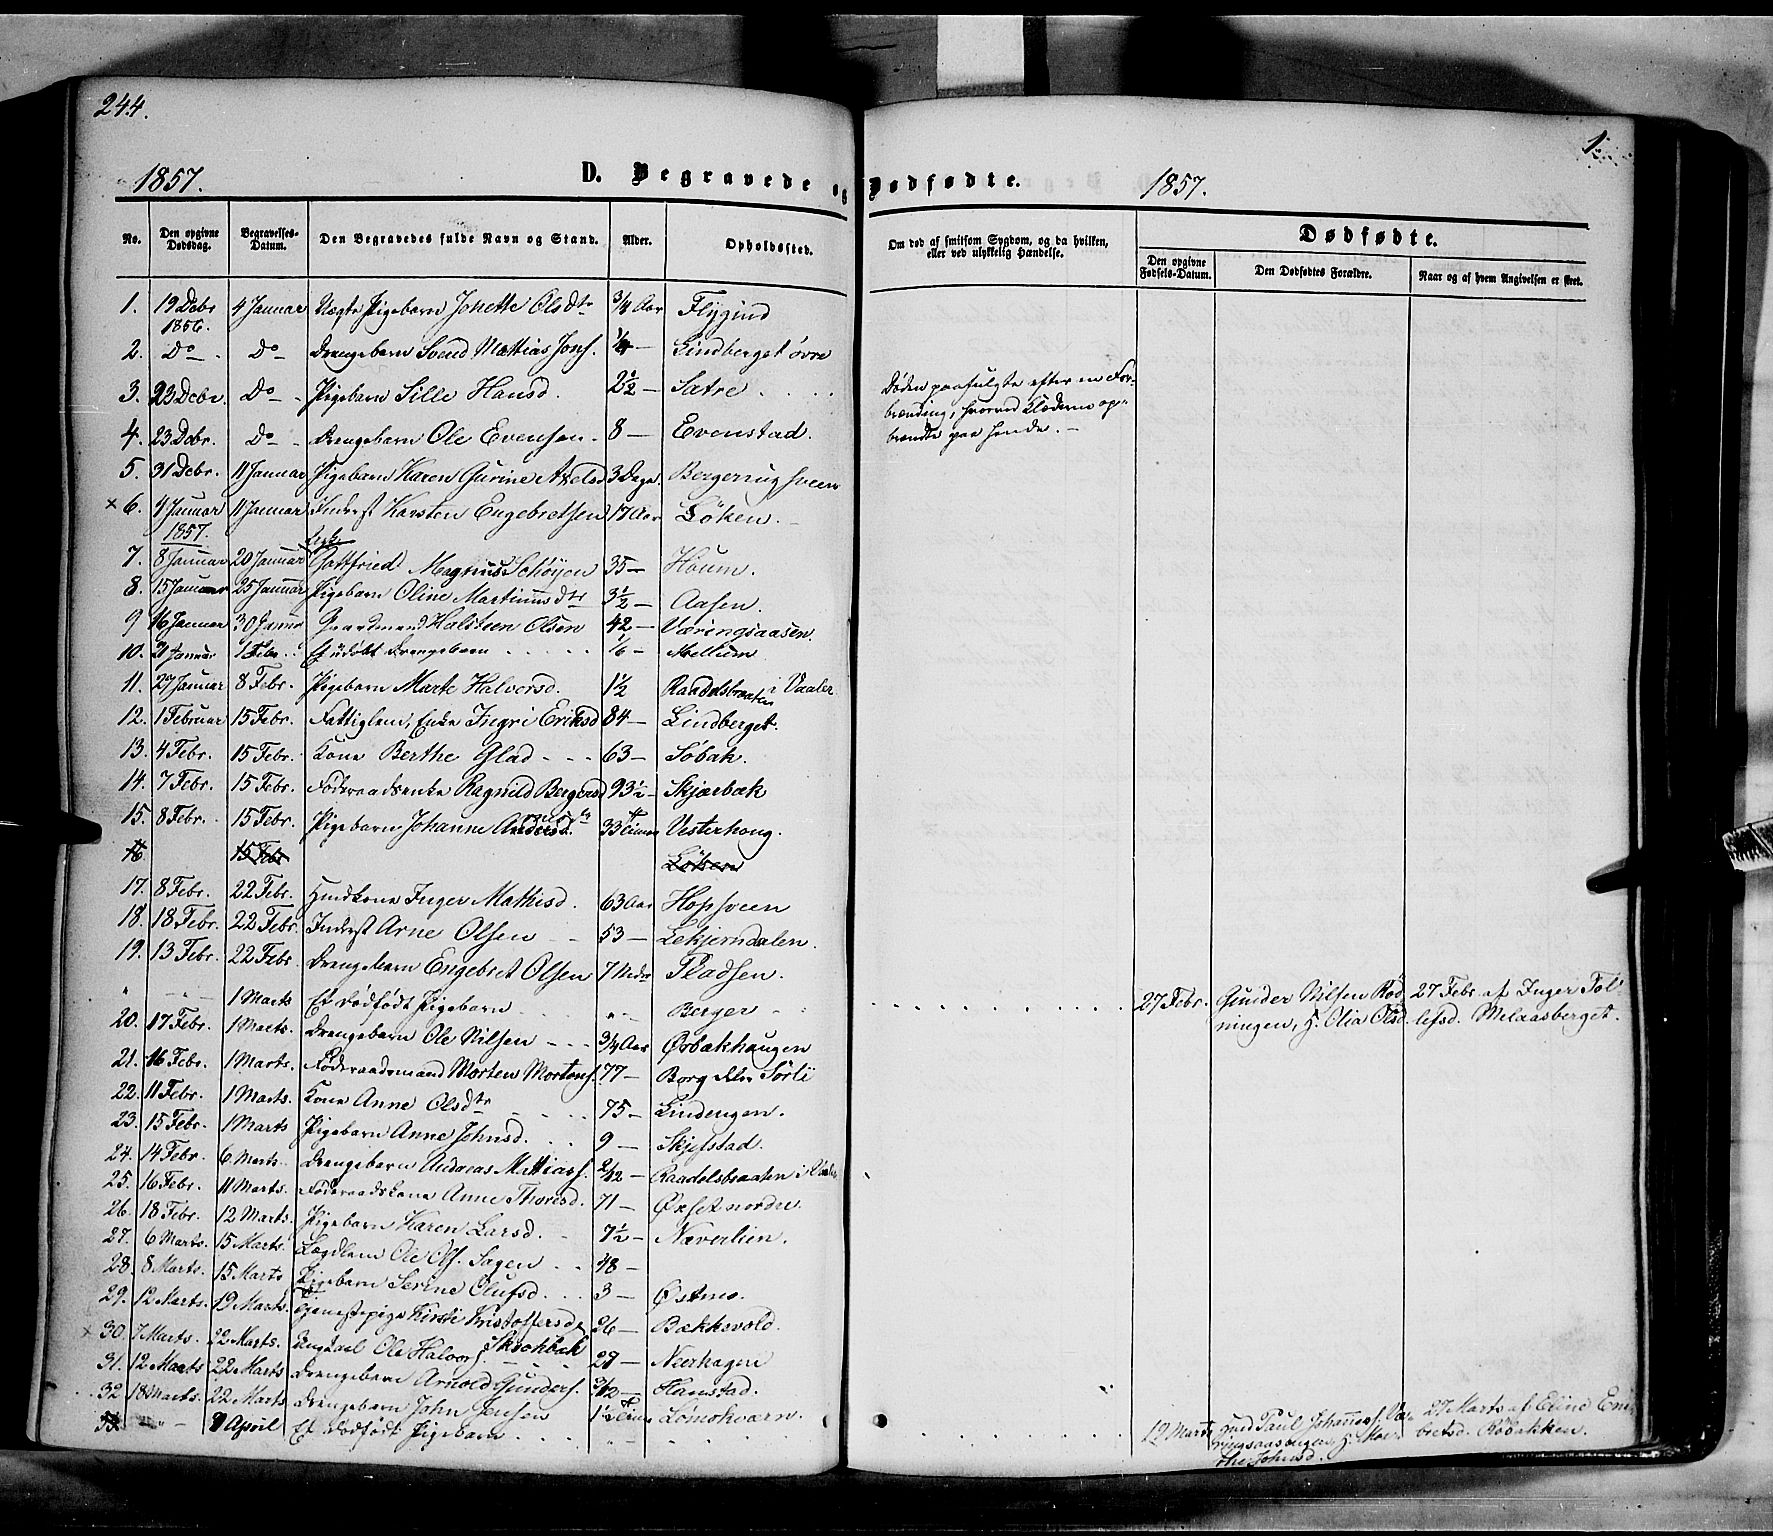 244.
1.
1857.
D. Begravede og Dødfødte.
1857.
No. | Den opgivne Dødsdag. | Begravelses-Datum. | Den Begravedes fulde Navn og Stand. | Alder. | Opholdssted. | Om død af smitsom Sygdom, og da hvilken, eller ved ulykkelig Hændelse. | Dødfødte.
Den opgivne Fødsels-Datum. | Den Dødfødtes Forældre. | Naar og af hvem Angivelsen er skeet.
1. 19 Debr 1856. 4 Januar Uægte Pigebarn Jonette Olsdtr 3/4 Aar Flygind
2. Do Do Drengebarn Svend Mathias Jons. 1/4 — Lindberget øvre
3. 23 Debr. Do Pigebarn Sille Hansd. 2 1/2 — Sætre
Døden paafulgte efter en For-
brænding, hvorved Klæderne op-
brændte paa hende. —
4. 23 Debr. Do Drengebarn Ole Evensen. 8 — Evenstad.
5. 31 Debr. 11 Januar Pigebarn Karen Gurine Axelsd 3 Dage. Bergerrugsveen
× 6. 4 Januar 1857. 11 Januar Inderst Karsten Engebretsen 17 Aar Løken.
7. 8 Januar 20 Januar Gottfried Magnus Schøyen 35 — Houm.
8. 15 Januar 25 Januar Pigebarn Oline Martinusdtr 3 1/2 — Aasen.
9 16 Januar 30 Janur Gaardmand Halsteen Olsen 42 — Væringsaasen.
10. 21 Januar 1 Febr. Et udøbt Drengebarn 1/6 — Mellum
11. 27 Januar 8 Febr. Pigebarn Marte Halversd. 1 1/2 Raadelsbraaten i Vaaler
12. 1 Februar 15 Febr. Fattiglem, Enke Ingri Eriksd 84 — Lindberget.
13. 4 Febr. 15 Febr. Kone Berthe Glad 63 — Søbak.
14. 7 Febr. 15 Febr. Føderaadsenke Ragnild Bergersd 93 1/2 — Skjærbæk
15. 8 Febr. 15 Febr. Pigebarn Johanne Andersd. 33 Timer Vesterhoug.
16 15 Febr Løken
17. 8 Febr. 22 Febr. Huuskone Inger Mathisd. 63 Aar Hopsveen
18. 18 Febr. 22 Febr. Inderst Arne Olsen 53 — Lekjerndalen.
19. 13 Febr. 22 Febr. Drengebarn Engebret Olsen 7 Mdr Pladsen.
" 1 Marts Et Dødfødt Pigebarn " Berger 27 Febr. Gunder Nilsen Rød- 27 Febr. af Inger Tol-
ningen, H. Olia Olsd. lefsd. Melaasberget.
20. 17 Febr. 1 Marts. Drengebarn Ole Nilsen 3/4 Aar Ørbækhaugen
21. 16 Febr. 1 Marts. Føderaadsmand Morten Mortens. 77 — Borg eller Sørli
22. 11 Febr. 1 Marts. Kone Anne Olsdtr 75 — Lindengen.
23. 15 Febr. 1 Marts Pigebarn Anne Johnsd. 9 — Skjefstad.
24. 14 Febr. 6 Marts. Drengebarn Andreas Mathias. 2/12 — Raadelsbraaten i Vaaler
25. 16 Febr. 11 Marts. Føderaadskone Anne Thoresd. 71 — Øxset nordre.
26. 18 Febr. 12 Marts. Pigebarn Karen Larsd. 7 1/2 — Næverlien.
27. 6 Marts. 15 Marts. Lægdlem Ole Ols. Sagen 48 —
28. 8 Marts. 15 Marts Pigebarn Serine Olufsd. 3 — Østmo.
29. 12 Marts. 19 Marts. Tjenestepige Kirsti Kristoffersd 26 — Bækkevold.
× 30. 7 Marts. 22 Marts. Ole Halvors. Skrokbæk 27 — Neerhagen
31. 12 Marts 22 Marts Drengebarn Arnold Gunders. 3/12 — Hanstad.
32 18 Marts. 22 Marts Drengebarn John Jensen 1 1/2 Time Lømokværn.
33. " April Et Dødfødt Pigebarn 19 Marts Paul Johannes. Væ- 27 Marts af Eline Em-
ringsaasengen, H. Mar- bretsd. Røbakken.
the Johnsd.